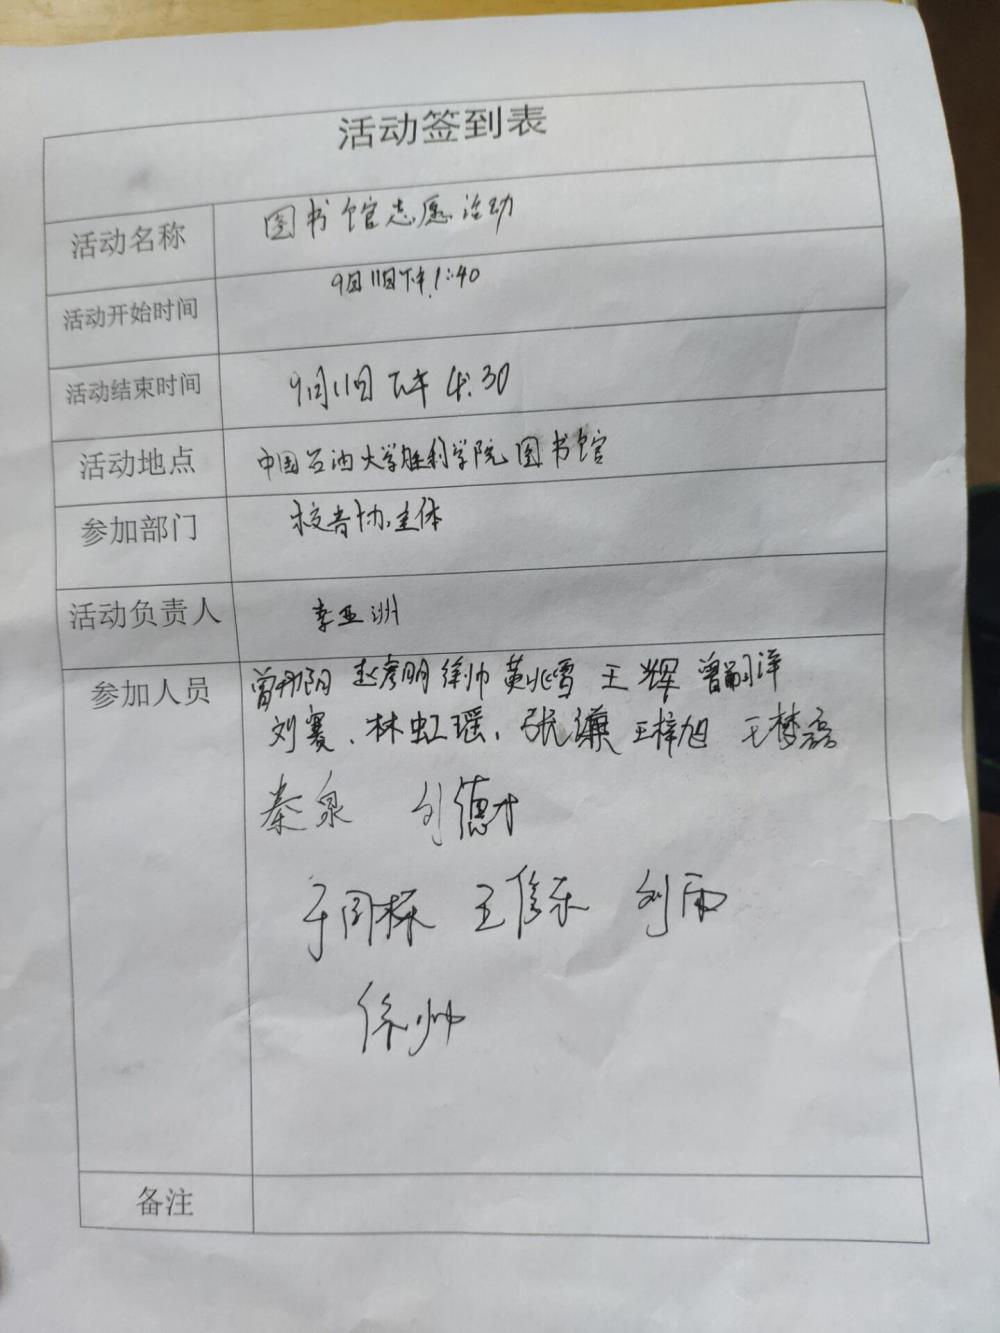 活动签到表
活动名称 图书馆志愿活动
活动开始时间 9月11日下午1:40
活动结束时间 9月11日下午4:30
活动地点 中国石油大学胜利学院图书馆
参加部门 校青协主体
活动负责人 李亚洲
参加人员 曾丹阴 赵彦明 徐帅 黄兆雪 王辉 曾嗣洋
刘赛、林虹瑶、张谦 王梓旭 王梦磊
秦泉 刘德才
于国栋 王俊乐 刘雨
徐帅
备注